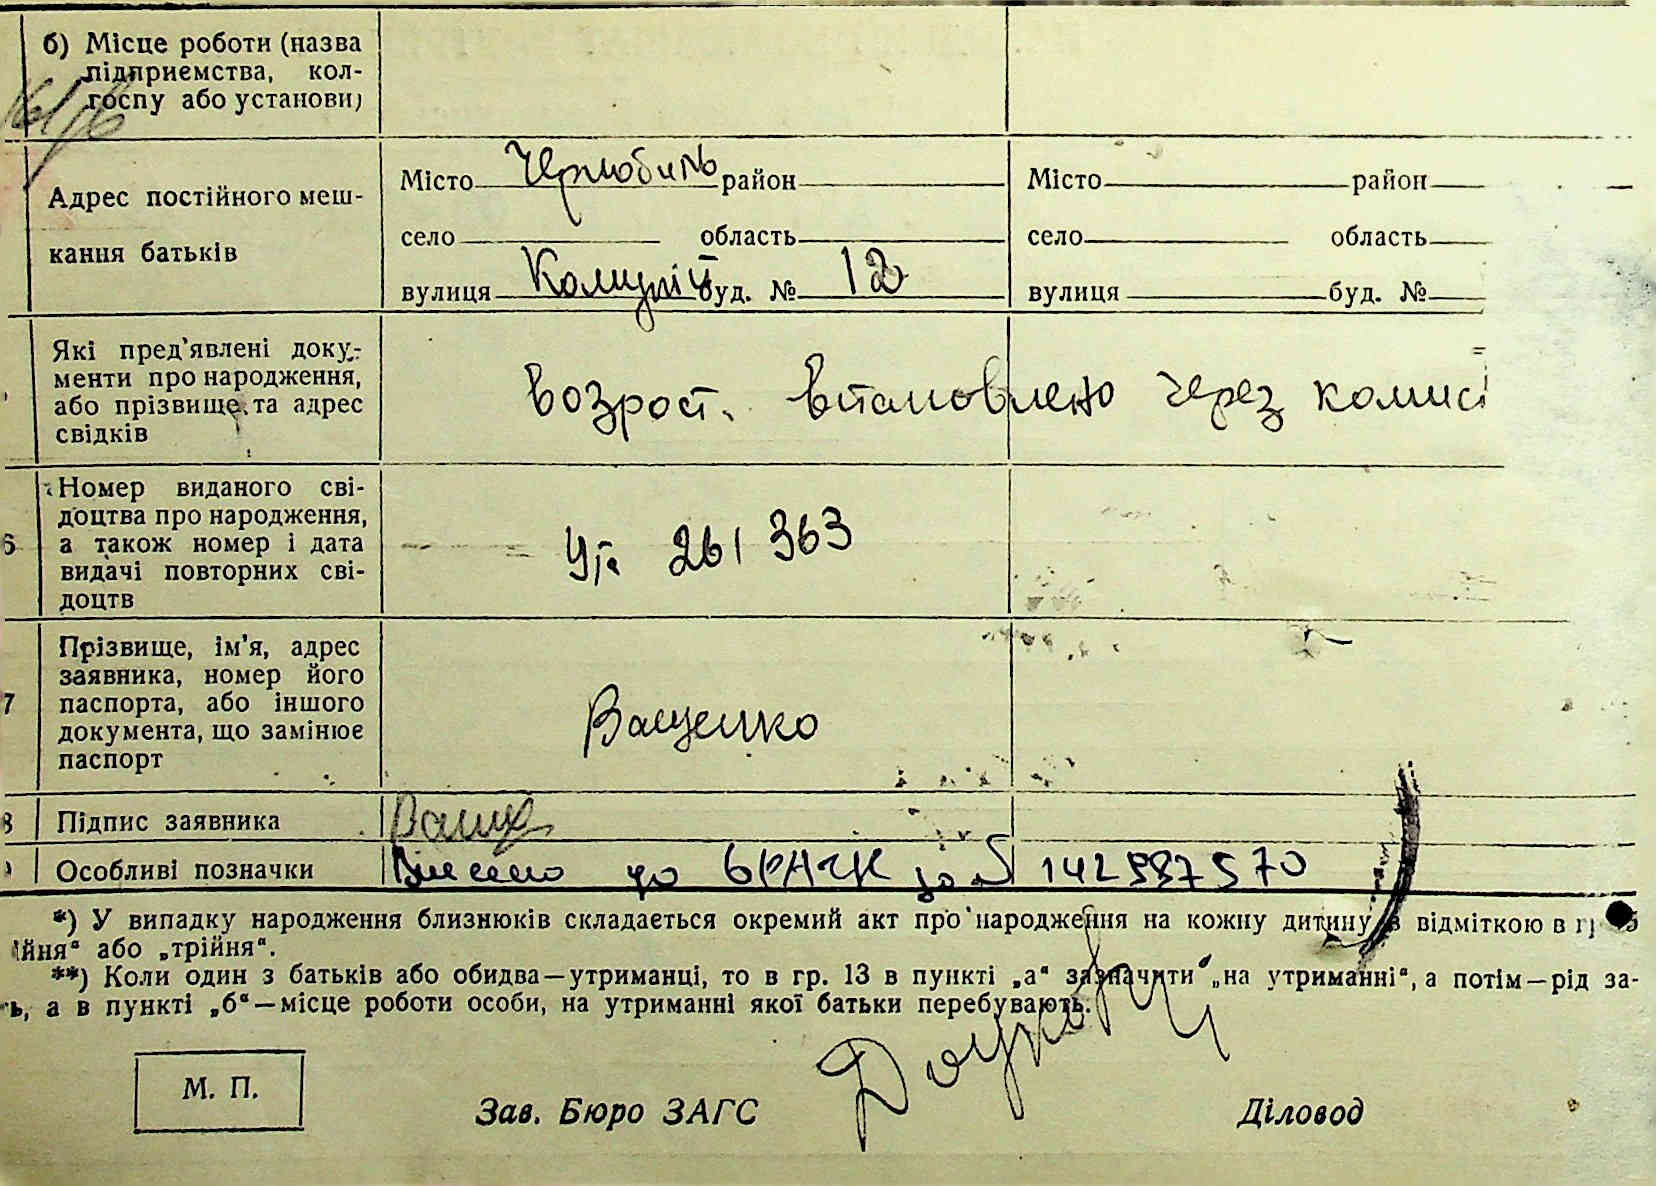 б) Місце роботи (назва
підприємства, кол-
госпу або установи)
Адрес постійного меш-
кання батьків
Місто Чернобиль район
село область
вулиця буд. № 12
Місто район
село область
вулиця буд. №
Які пред'явлені доку-
менти про народження,
або прізвище та адрес
свідків
возраст. встановлено через комисі
6 Номер виданого сві-
доцтва про народження,
а також номер і дата
видачі повторних сві-
доцтв
261 363
7 Прізвище, ім'я, адрес
заявника, номер його
паспорта, або іншого
документа, що замінює
паспорт
Ващенко
8 Підпис заявника
Особливі позначки Внесено до
*) У випадку народження близнюків складається окремий акт про народження на кожну дитину з відміткою в гр. 5
ійня" або „трійня".
**) Коли один з батьків або обидва—утриманці, то в гр. 13 в пункті „а" зазначити „на утриманні", а потім—рід за-
ь, а в пункті „б"—місце роботи особи, на утриманні якої батьки перебувають.
М. П.
Зав. Бюро ЗАГС
Діловод